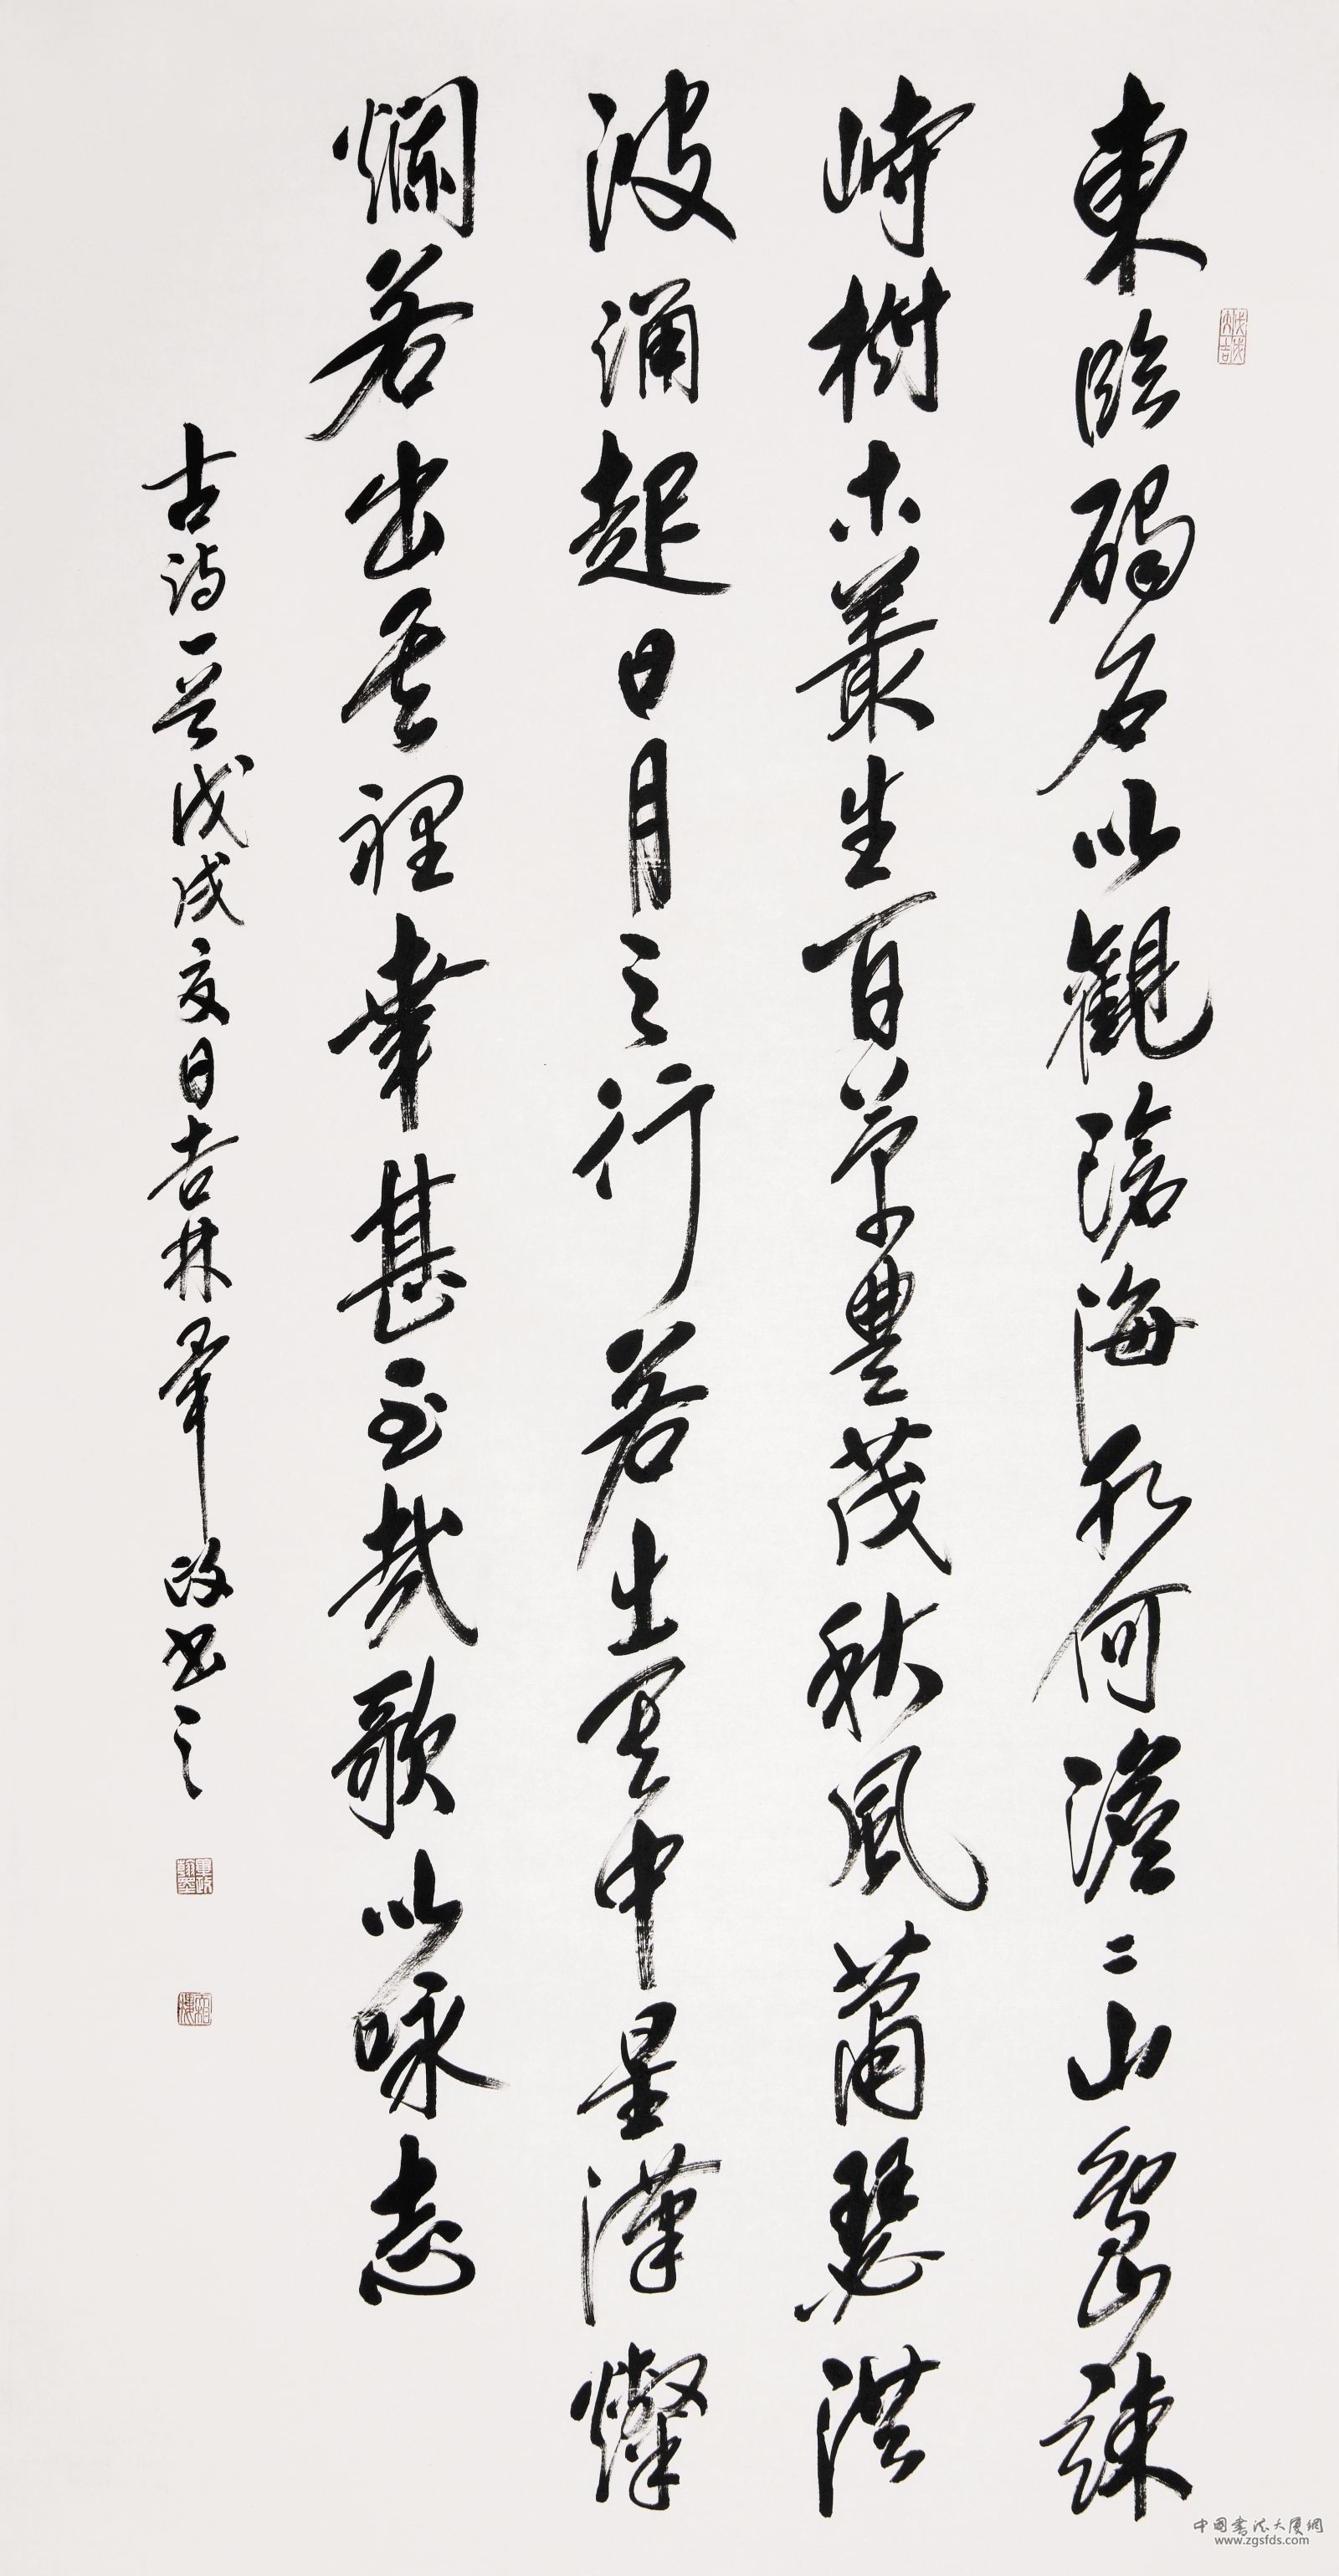 東臨碣石以觀滄海水何澹〻山島竦
峙樹木叢生百草豐茂秋風蕭瑟洪
波涌起日月之行若出其中星漢燦
爛若出其裡幸甚至哉歌以咏志
古詩一首戊戌夏日吉林軍政書之
中国書法大厦網
www.zgsfds.com